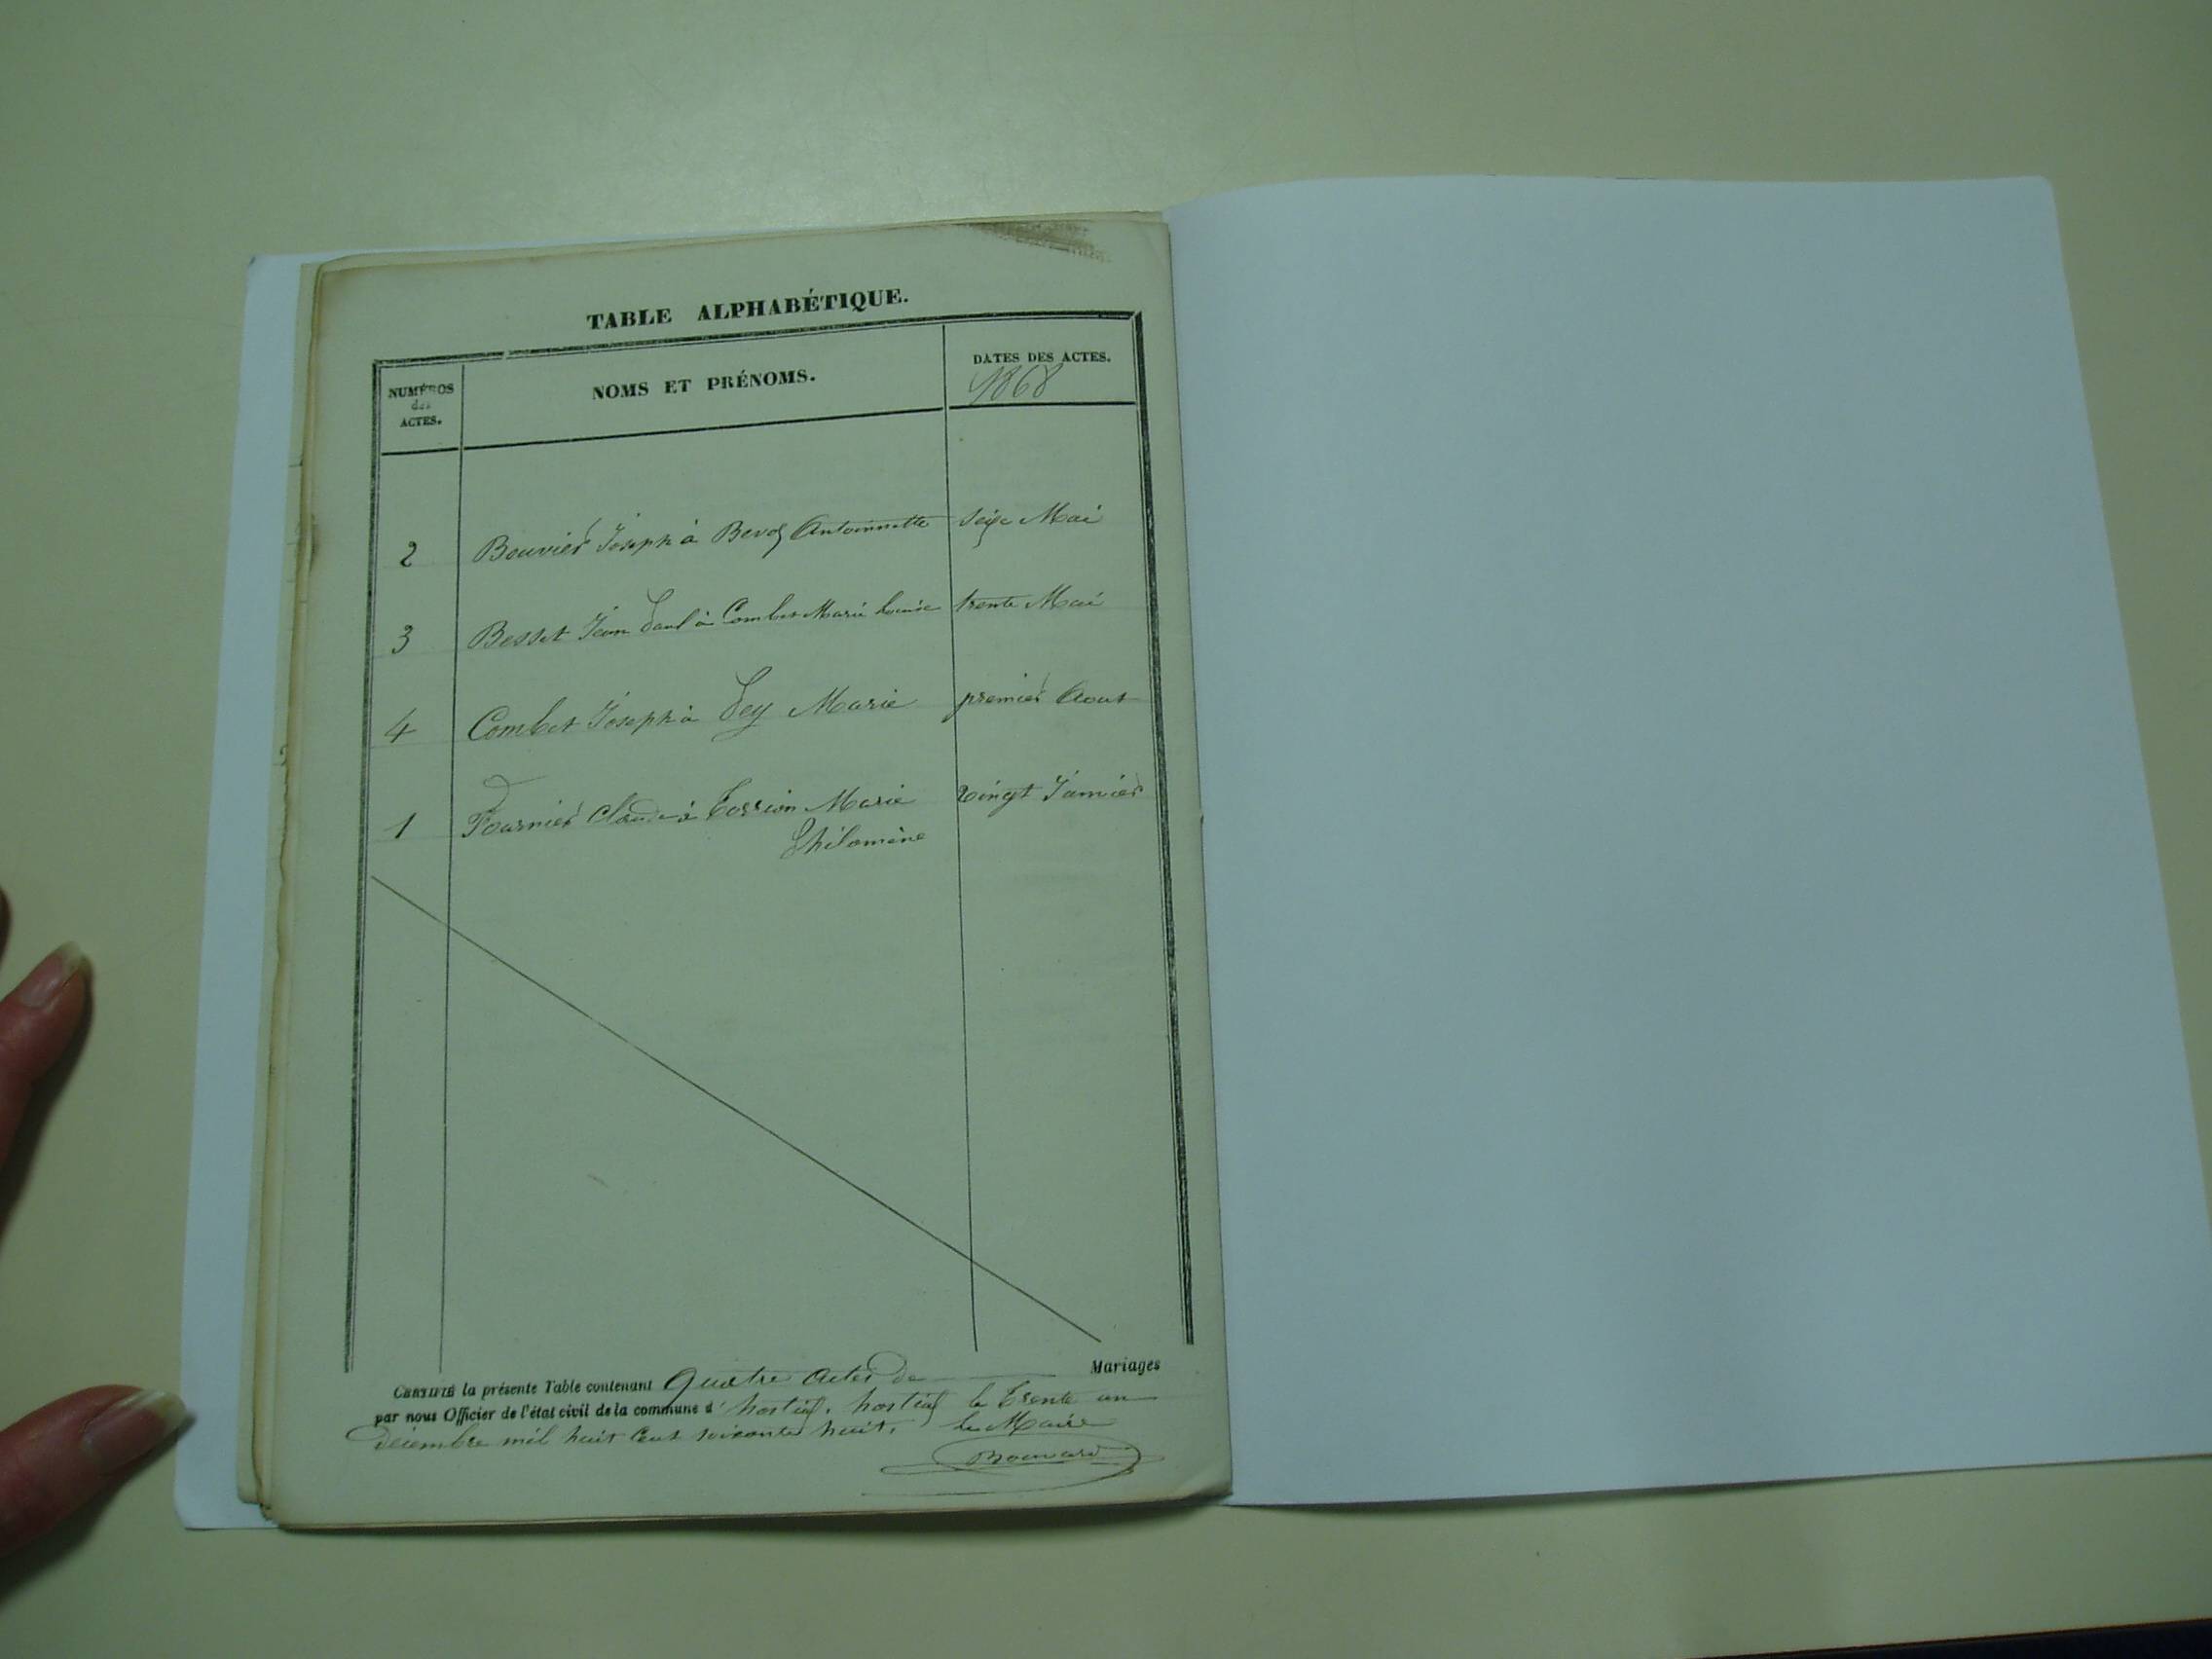 TABLE ALPHABÉTIQUE.
NUMÉROS
des
ACTES.
NOMS ET PRÉNOMS.
DATES DES ACTES.
1868
2 Bouvier Joseph à Antoinnette seize Mai
3 Besset Jean Paul à Combet Marie Louise trente Mai
4 Combet Joseph à Pey Marie premier Aout
1 Fournier Claude à Marie vingt Janvier
Philomène
CERTIFIÉ la présente Table contenant quatre actes de Mariages
par nous Officier de l'état civil de la commune d' hostiaz. hostiaz le trente un
décembre mil huit cent soixante huit. le Maire